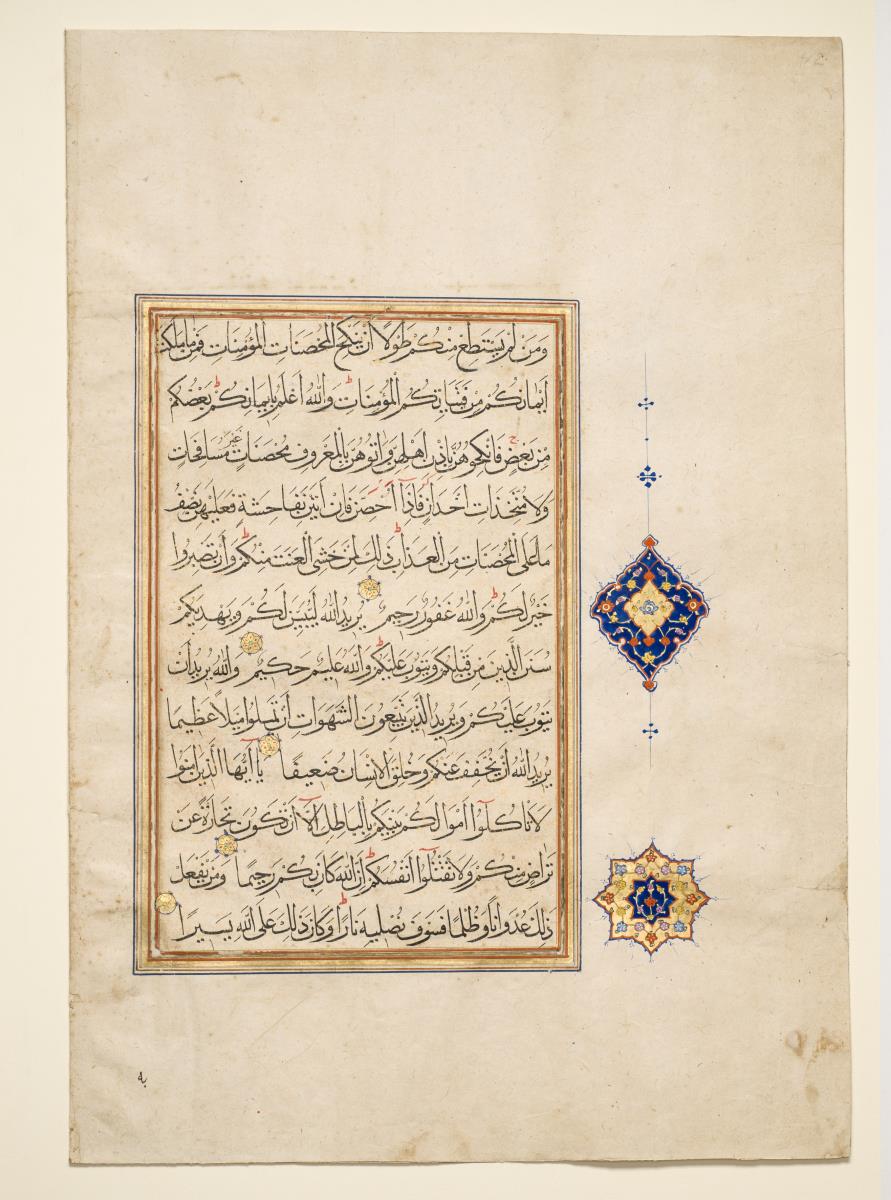 وَمَنْ لَمْ يَسْتَطِعْ مِنْكُمْ طَوْلًا أَنْ يَنْكِحَ الْمُحْصَنَاتِ الْمُؤْمِنَاتِ فَمِنْ مَا مَلَكَتْ
أَيْمَانُكُمْ مِنْ فَتَيَاتِكُمُ الْمُؤْمِنَاتِ ط وَاللّٰهُ أَعْلَمُ بِإِيمَانِكُمْ ط بَعْضُكُمْ
مِنْ بَعْضٍ ج فَانْكِحُوهُنَّ بِإِذْنِ أَهْلِهِنَّ وَاٰتُوهُنَّ بِالْمَعْرُوفِ مُحْصَنَاتٍ غَيْرَ مُسَافِحَاتٍ
وَلَا مُتَّخِذَاتِ أَخْدَانٍ فَإِذَا أُحْصِنَّ فَإِنْ أَتَيْنَ بِفَاحِشَةٍ فَعَلَيْهِنَّ نِصْفُ
مَا عَلَى الْمُحْصَنَاتِ مِنَ الْعَذَابِ ط ذٰلِكَ لِمَنْ خَشِيَ الْعَنَتَ مِنْكُمْ ط وَأَنْ تَصْبِرُوا
خَيْرٌ لَكُمْ ط وَاللّٰهُ غَفُورٌ رَحِيمٌ يُرِيدُ اللّٰهُ لِيُبَيِّنَ لَكُمْ وَيَهْدِيَكُمْ
سُنَنَ الَّذِينَ مِنْ قَبْلِكُمْ وَيَتُوبَ عَلَيْكُمْ ط وَاللّٰهُ عَلِيمٌ حَكِيمٌ وَاللّٰهُ يُرِيدُ أَنْ
يَتُوبَ عَلَيْكُمْ وَيُرِيدُ الَّذِينَ يَتَّبِعُونَ الشَّهَوَاتِ أَنْ تَمِيلُوا مَيْلًا عَظِيمًا
يُرِيدُ اللّٰهُ أَنْ يُخَفِّفَ عَنْكُمْ وَخُلِقَ الْإِنْسَانُ ضَعِيفًا يَا أَيُّهَا الَّذِينَ اٰمَنُوا
لَا تَأْكُلُوا أَمْوَالَكُمْ بَيْنَكُمْ بِالْبَاطِلِ إِلَّا أَنْ تَكُونَ تِجَارَةً عَنْ
تَرَاضٍ مِنْكُمْ وَلَا تَقْتُلُوا أَنْفُسَكُمْ ط إِنَّ اللّٰهَ كَانَ بِكُمْ رَحِيمًا وَمَنْ يَفْعَلْ
ذٰلِكَ عُدْوَانًا وَظُلْمًا فَسَوْفَ نُصْلِيهِ نَارًا ط وَكَانَ ذٰلِكَ عَلَى اللّٰهِ يَسِيرًا